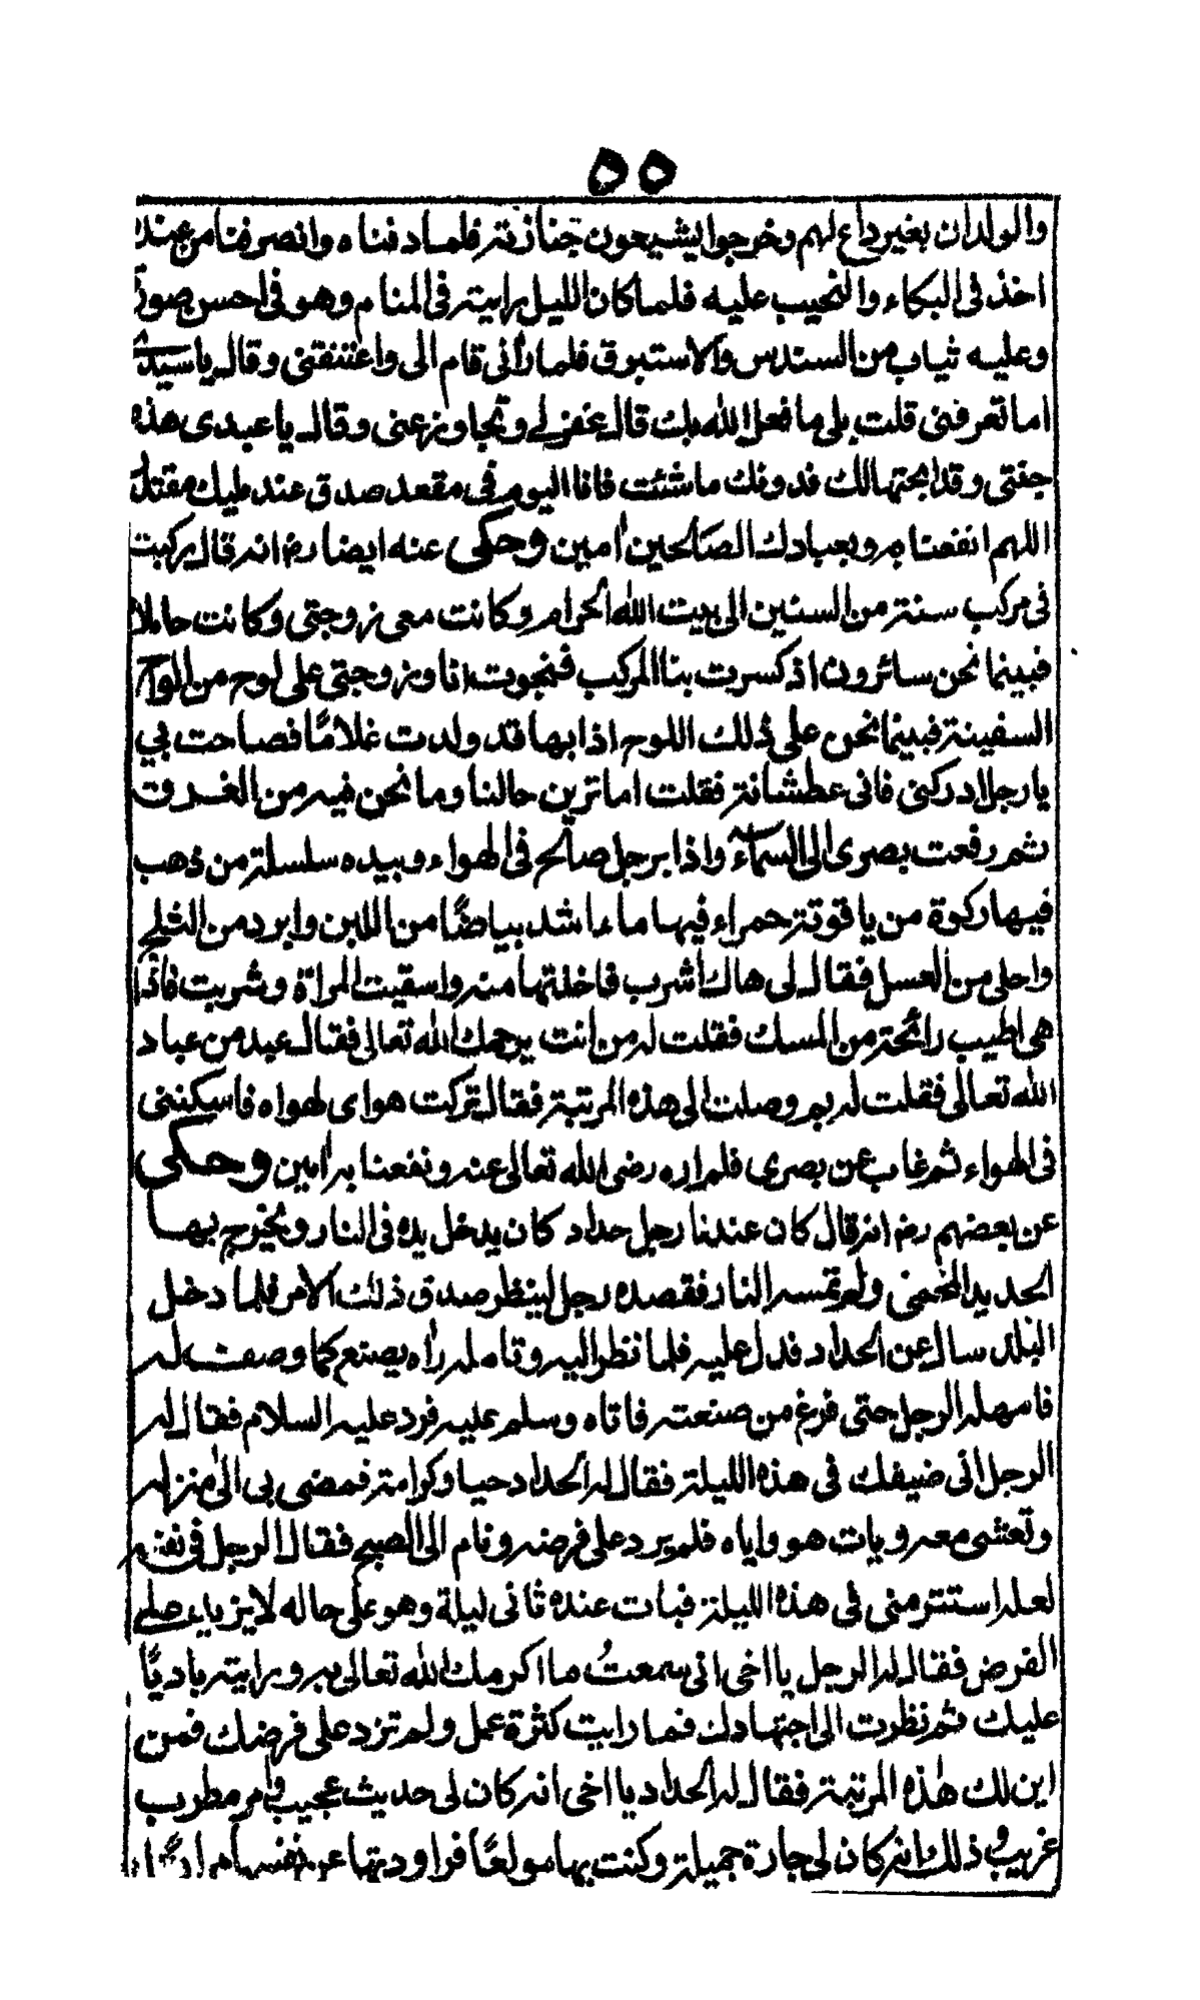 ٥٥
والولدان بغير داع لهم وخرجوا يشيعون جنازته فلما دفناه وانصرفنا من عنده
اخذ فى البكاء والنحيب عليه فلما كان الليل رايته فى المنام وهو فى احسن صورة
وعليه ثياب من السندس والاستبرق فلما رأنى قام الى واعتنقنى وقال يا سيدى
اما تعرفنى قلت بلى ما فعل الله بك قال غفر لى وتجاوز عنى وقال يا عبدى هذه
جنتى وقد ابحتها لك فدونك ما شئت فانا اليوم فى مقعد صدق عند مليك مقتدر
اللهم انفعنا به وبعبادك الصالحين امين وحكى عنه ايضا رضه انه قال ركبت
فى مركب سنة من السنين الى بيت الله الحرام وكانت معى زوجتى وكانت حاملا
فبينما نحن سائرون اذ كسرت بنا المركب فنجوت انا وزوجتى على لوح من الواح
السفينة فبينما نحن على ذلك اللوح اذا بها قد ولدت غلامًا فصاحت بي
يا رجل ادركنى فانى عطشانة فقلت اما ترين حالنا وما نحن فيه من الغرق
ثم رفعت بصرى الى السماء واذا برجل صالح فى الهواء وبيده سلسلة من ذهب
فيها ركوة من ياقوتة حمراء فيها ماء اشد بياضًا من اللبن وابرد من الثلج
واحلى من العسل فقال لى هاك اشرب فاخذتها منه واسقيت المراة وشربت فاذا
هى اطيب رائحة من المسك فقلت له من انت يرحمك الله تعالى فقال عبد من عباد
الله تعالى فقلت له بم وصلت الى هذه المرتبة فقال تركت هواى لهواه فاسكننى
فى الهواء ثم غاب عن بصرى فلم اره رضى الله تعالى عنه ونفعنا به امين وحكى
عن بعضهم رضه انه قال كان عندنا رجل حداد كان يدخل يده فى النار ويخرج بها
الحديد المحمى ولم تمسه النار فقصده رجل لينظر صدق ذلك الامر فلما دخل
البلد سال عن الحداد فدل عليه فلما نظر اليه وتامله راٰه يصنع كما وصفت له
فامهله الرجل حتى فرغ من صنعته فاتاه وسلم عليه فرد عليه السلام فقال له
الرجل انى ضيفك فى هذه الليلة فقال له الحداد حبا وكرامة فمضى بى الى منزله
وتعشى معه وبات هو واياه فلم يرد على فرضه ونام الى الصبح فقال الرجل فى نفسه
لعله استتر منى فى هذه الليلة فبات عنده ثانى ليلة وهو على حاله لا يزيد على
الفرض فقال له الرجل يا اخى انى سمعتُ ما اكرمك الله تعالى به ورايته باديًا
عليك ثم نظرت الى اجتهادك فما رايت كثرة عمل ولم تزد على فرضك فمن
اين لك هذه المرتبة فقال له الحداد يا اخى انه كان لى حديث عجيب وامر مطرب
غريب وذلك انه كان لى جارة جميلة وكنت بها مولعًا فراودتها عن نفسها مرارًا